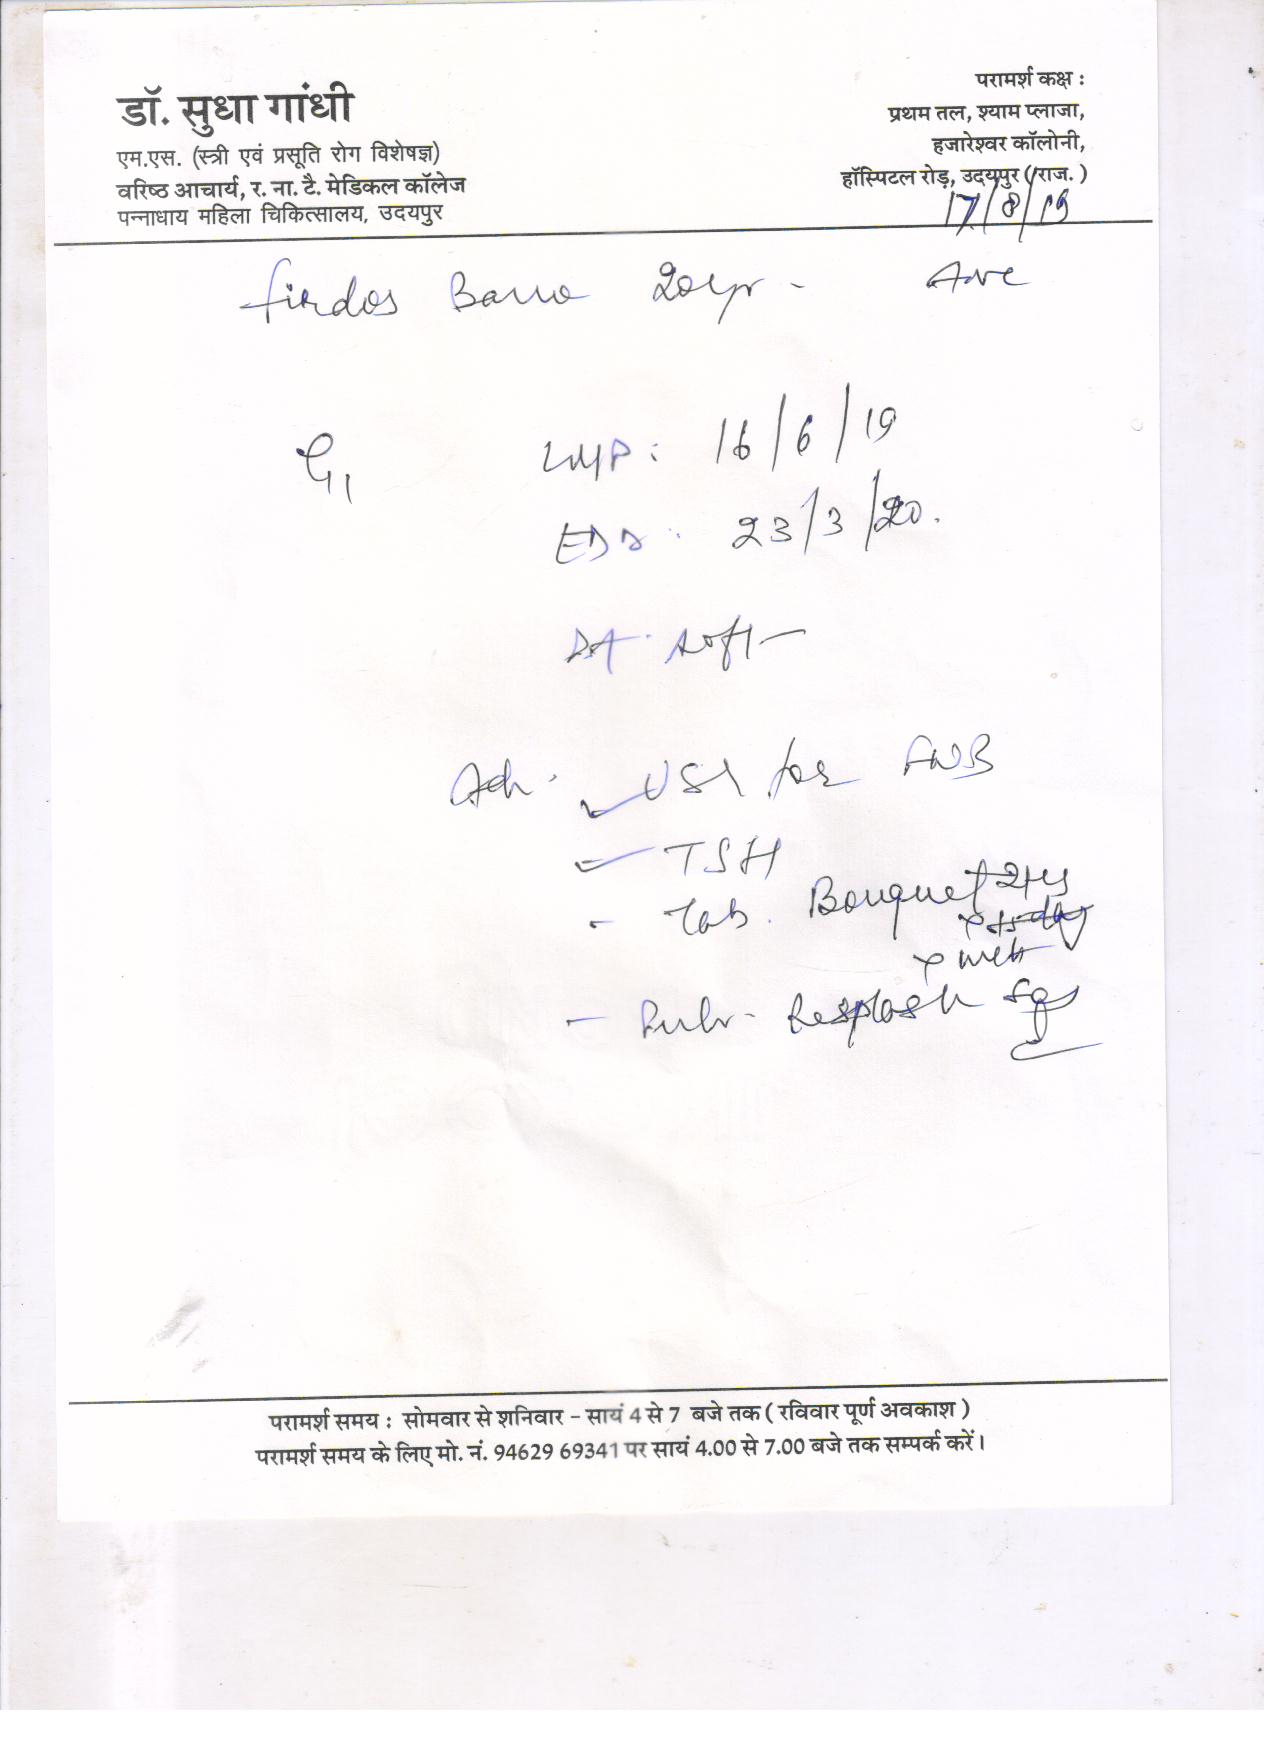 डॉ. सुधा गांधी
एम.एस. (स्त्री एवं प्रसूति रोग विशेषज्ञ)
वरिष्ठ आचार्य, र. ना. टै. मेडिकल कॉलेज
पन्नाधाय महिला चिकित्सालय, उदयपुर
परामर्श कक्ष :
प्रथम तल, श्याम प्लाजा,
हजारेश्वर कॉलोनी,
हॉस्पिटल रोड़, उदयपुर (राज.)
17/8/19
Firdos Bano 20yr -
G1 LMP: 16/6/19
EDD: 23/3/20.
PA: soft
Adv. USG for FWB
- TSH
- Tab. Bouquet
- Pulv. Resplash
परामर्श समय : सोमवार से शनिवार - सायं 4 से 7 बजे तक ( रविवार पूर्ण अवकाश )
परामर्श समय के लिए मो. नं. 94629 69341 पर सायं 4.00 से 7.00 बजे तक सम्पर्क करें।